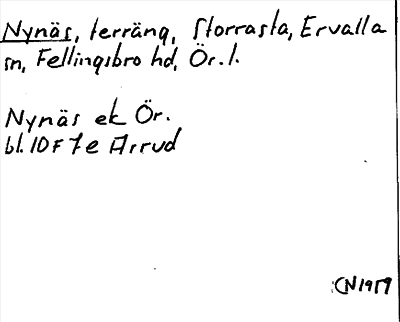 Nynäs, terräng, Storrasta, Ervalla
sn, Fellingsbro hd, Ör. l.
Nynäs ek Ör.
bl. 10F 7e Arrud
CN 1959